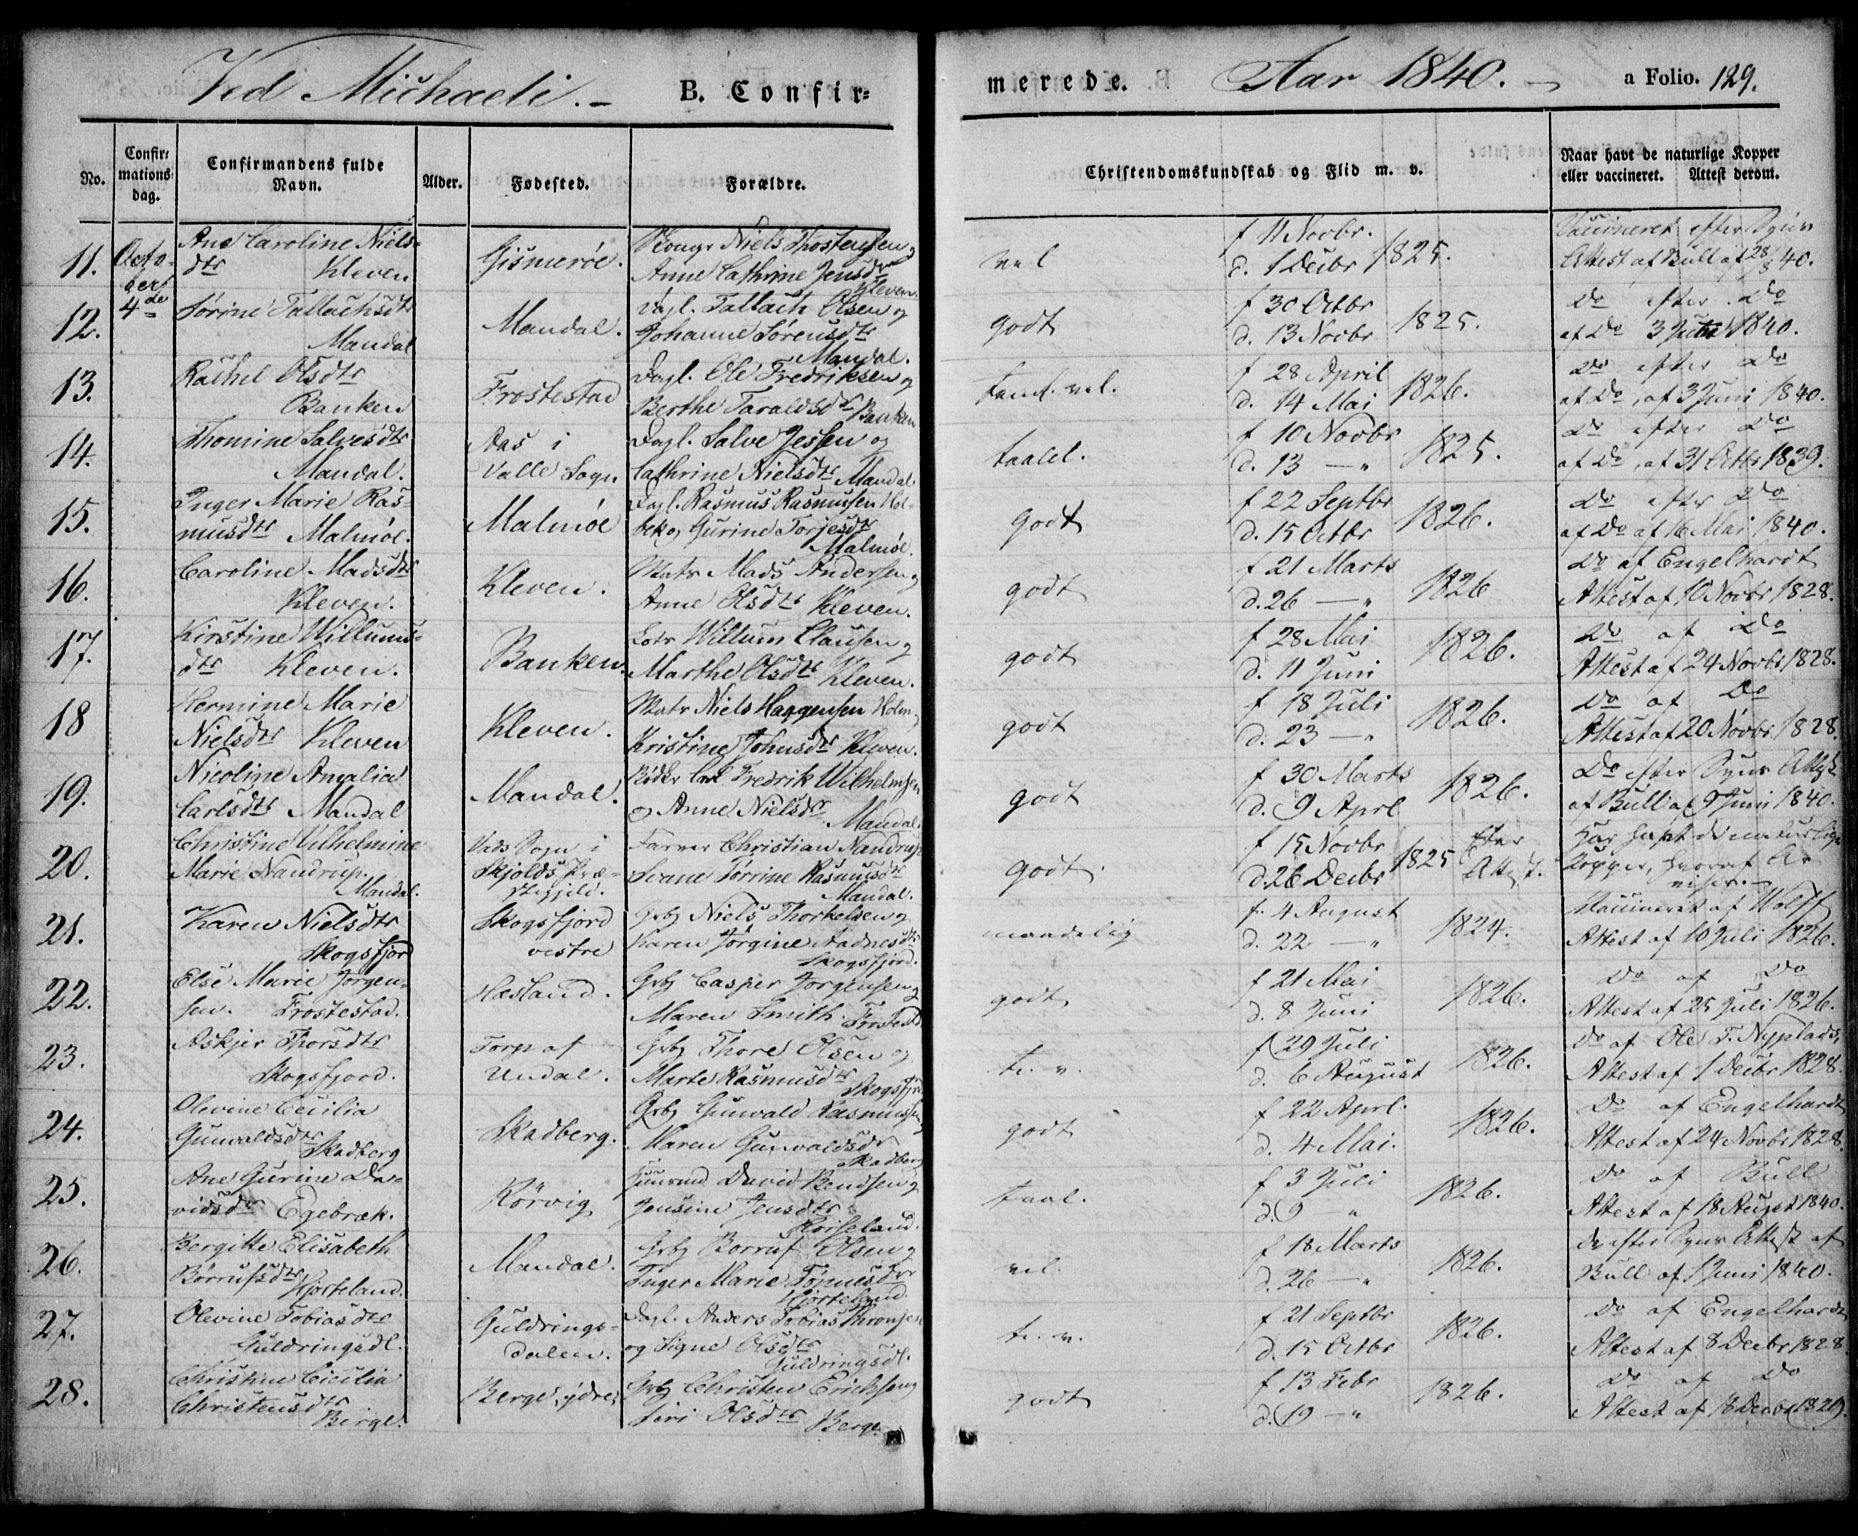 Ved Michaeli. B. Confir= merede. Aar 1840. a Folio. 129.
No. Confir= mations= dag. Confirmandens fulde Navn. Alder. Fødested. Forældre. Christendomskundskab og Flid m. v. Naar havt de naturlige Kopper eller vaccineret. Attest derom.
11. Octo- Ane Caroline Niels- Gismerøe. Niels Thostensen og vel f 11 Novbr. 1825. Vaccineret efter Syns
ber dtr Kleven Anne Cathrine Jensdtr Kleven. d. 1 Decbr Attest af Bull af 28/8 40.
12. 4de Sørine Tallachsdtr Mandal. Dagl. Tallach Olsen og godt f 30 Octbr 1825. Do efter Do
Mandal Johanne Sørensdtr Mandal. d. 13 Novbr af Do 3 1840.
13. Rachel Olsdtr Frostestad Dagl. Ole Fredriksen og vel. f 28 April 1826. Do efter Do
Banken Berthe Taraldsdtr Banken d. 14 Mai af Do, af 3 Juni 1840.
14. Thomine Salvesdtr Aas i Dagl. Salve Jessen og taalel. f 10 Novbr 1825. Do efter Do
Mandal. Valle Sogn Cathrine Nielsdtr Mandal d. 13 — " af Do, af 31 Octbr 1839.
15. Inger Marie Ras- Malmøe Dagl. Rasmus Rasmussen Hol- godt f 22 Septbr 1826. Do efter Do
musdtr Malmøe. bek og Gurine Torjesdtr Malmøe. d. 15 Octbr af Do af 16 Mai 1840.
16. Caroline Madsdtr Kleven. Matr Mads Andersen og godt f 21 Marts 1826 Do af Engelhardt
Kleven. Anne Olsdtr Kleven. d. 26 — " Attest af 10 Novbr 1828.
17. Kirstine Willums- Banken. Lots Willum Clausen og godt f 28 Mai 1826. Do af Do
dtr Kleven. Marthe Olsdtr Kleven. d. 11 Juni Attest af 24 Novbr 1828.
18 Hermine Marie Kleven. Matr Niels Haagensen Holm og godt f 18 Juli 1826. Do af Do
Nielsdtr Kleven Kristine Johnsdtr Kleven. d. 23 — " Attest af 20 Novbr 1828.
19. Nicoline Amalia Mandal. Bødker Carl Fredrik Wilhelmsen godt f 30 Marts 1826. Do efter Syns Attest
Carlsdtr Mandal og Anne Nielsdtr Mandal. d. 9 Aprl af Bull af 9 Juni 1840.
20. Christine Vilhelmine Vats Sogn i Farver Christian Nandrup godt. f 15 Novbr 1825 Efter Har havt de naturlige
Marie Nandrup. Mandal. Skjolds Præ- stegjeld. Svane Tørrine Rasmusdtr Mandal. d. 26 Decbr Attest. Kopper, hvoraf Ar viser.
21. Karen Nielsdtr Skogsfjord Grbg Niels Thorkelsen og maadelig f. 4 August 1824. Vaccineret af Wolff
Skogsfjord vestre Karen Jørgine Aadnesdtr Skogsfjord. d. 22 — " Attest af 10 Juli 1826.
22. Else Marie Jørgen- Hæsland. Grbg Casper Jørgensen og godt f 21 Mai 1826. Do af Do
sen. Frostestad. Maren Smith. Frostestad d. 8 Juni Attest af 25 Juli 1826.
23. Askjer Thorsdtr Torp af Grbg Thore Olsen og t. v. f 29 Juli 1826. Do af Ole T. Nyplads,
Skogsfjord. Undal. Marte Rasmusdtr Skogsfjord d. 6 August Attest af 1 Decbr 1828.
24. Olevine Cecilia Skadberg. Grbg Gunvald Rasmussen godt f 22 Aprl. 1826. Do af Engelhardt
Gunvaldsdtr Skadberg Maren Gunvaldsdtr Skadberg d. 4 Mai. Attest af 24 Novbr 1828.
25. Ane Gurine Da- Rørvig David Bendsen og taal. f 3 Juli 1826. Do af Bull
vidsdtr Egebræk. Jensine Jensdtr d. 9 " Attest af 18 August 1840.
26. Bergitte Elisabeth Mandal. Grbg Børruf Olsen og vel. f 18 Marts 1826. Do efter Syns Attest af
Børrufsdtr Hjorteland. Inger Marie Tønnesdtr Hjorteland d. 26 — " Bull af 1 Juni 1840.
27. Olevine Tobiasdtr Guldrings- Dagl. Anders Tobias Thronsen t. v. f 21 Septbr 1826. Do af Engelhardt
Guldringsdl. dalen. og Signe Olsdtr Guldringsdl. d. 15 Octbr Attest af 8 Decbr 1828.
28. Christine Cicilia Berge, ydre, Grbg Christen Erichsen og godt f 13 Febr 1826. Do af Do
Christensdtr Berge. Siri Olsdtr Berge d. 19 — " Attest af 18 Decbr 1829.